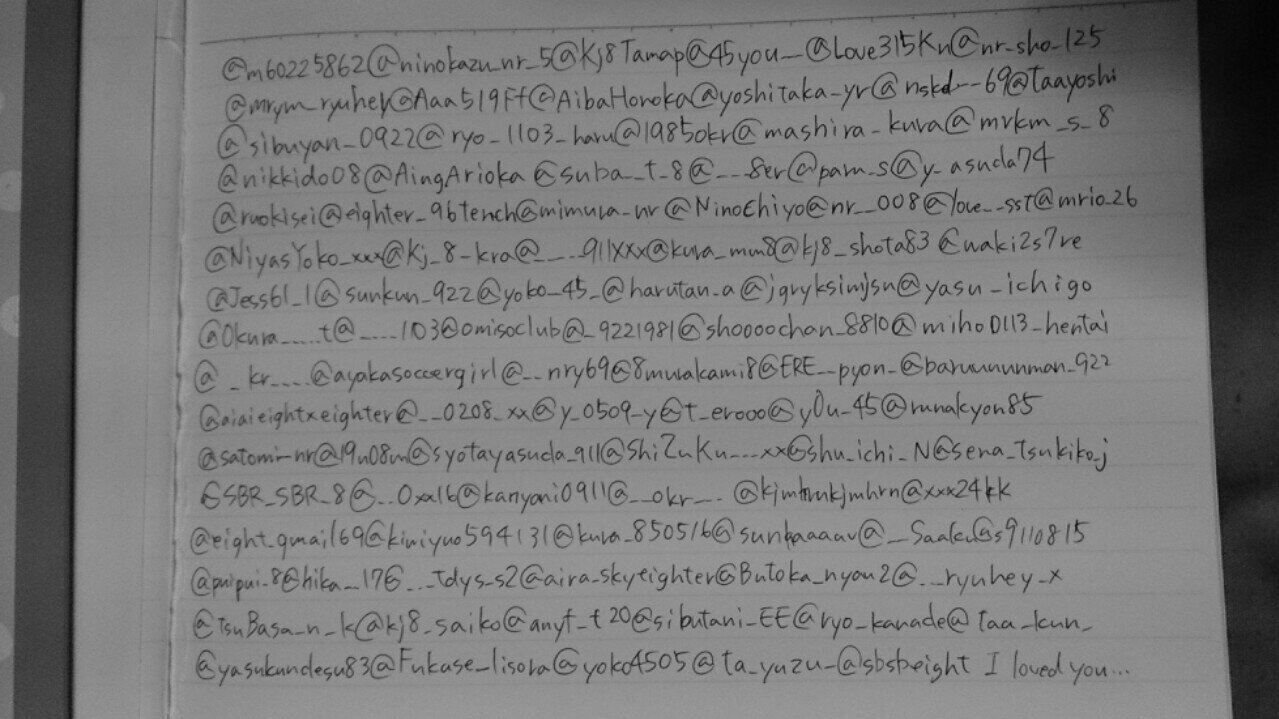 @m60225862@ninokazu_nr_5@Kj8Tamap@45you__@Love315Kn@nr_sho_125
@mrym_ryuhey@Aaa519Ff@AibaHonoka@yoshitaka_yr@nskd---69@Taayoshi
@sibuyan_0922@ryo_1103_haru@1985okr@mashira_kura@mrkm_s_8
@nikkido08@AingArioka@suba__t_8@_...8er@pam_s@y_asuda74
@ruokisei@eighter_96tench@mimura_nr@NinoChiyo@nr__008@love__sst@mrio_26
@NiyasYoko_xxx@Kj_8_kra@_....911xxx@kura_mm8@kj8_shota83@waki2s7re
@Jess61_1@sunkun_922@yoko_45_@harutan_a@jgryksimjsn@yasu_ichigo
@Okura_.....t@_....1103@omisoclub@_9221981@shoooochan_8810@miho0113_hentai
@_kr____@ayakasoccergirl@__nry69@8murakami8@ERE__pyon_@baruuununman_922
@aiaieightxeighter@__0208_xx@y_0509_y@t_erooo@y0u_45@runakyon85
@satomi_nr@19u08m@syotayasuda_911@ShiZuKu___xx@shu_ichi_N@sena_Tsukiko_j
@SBR_SBR_8@__0xx16@kanyani0911@__okr__ @kjmhmkjmhrn@xxx24kk
@eight_gmail69@kimiyuo594131@kura_850516@sunbaaaau@__Saaku@s9110815
@puipui_8@hika__17@___tdys_s2@aira_skyeighter@Butoka_nyan2@__ryuhey_x
@TsuBasa_n_k@kj8_saiko@anyf_t20@sibutani_EE@ryo_kanade@Taa_kun_
@yasukundesu83@Fukase_lisora@yoko4505@ta_yuzu_@sbsbeight I loved you...